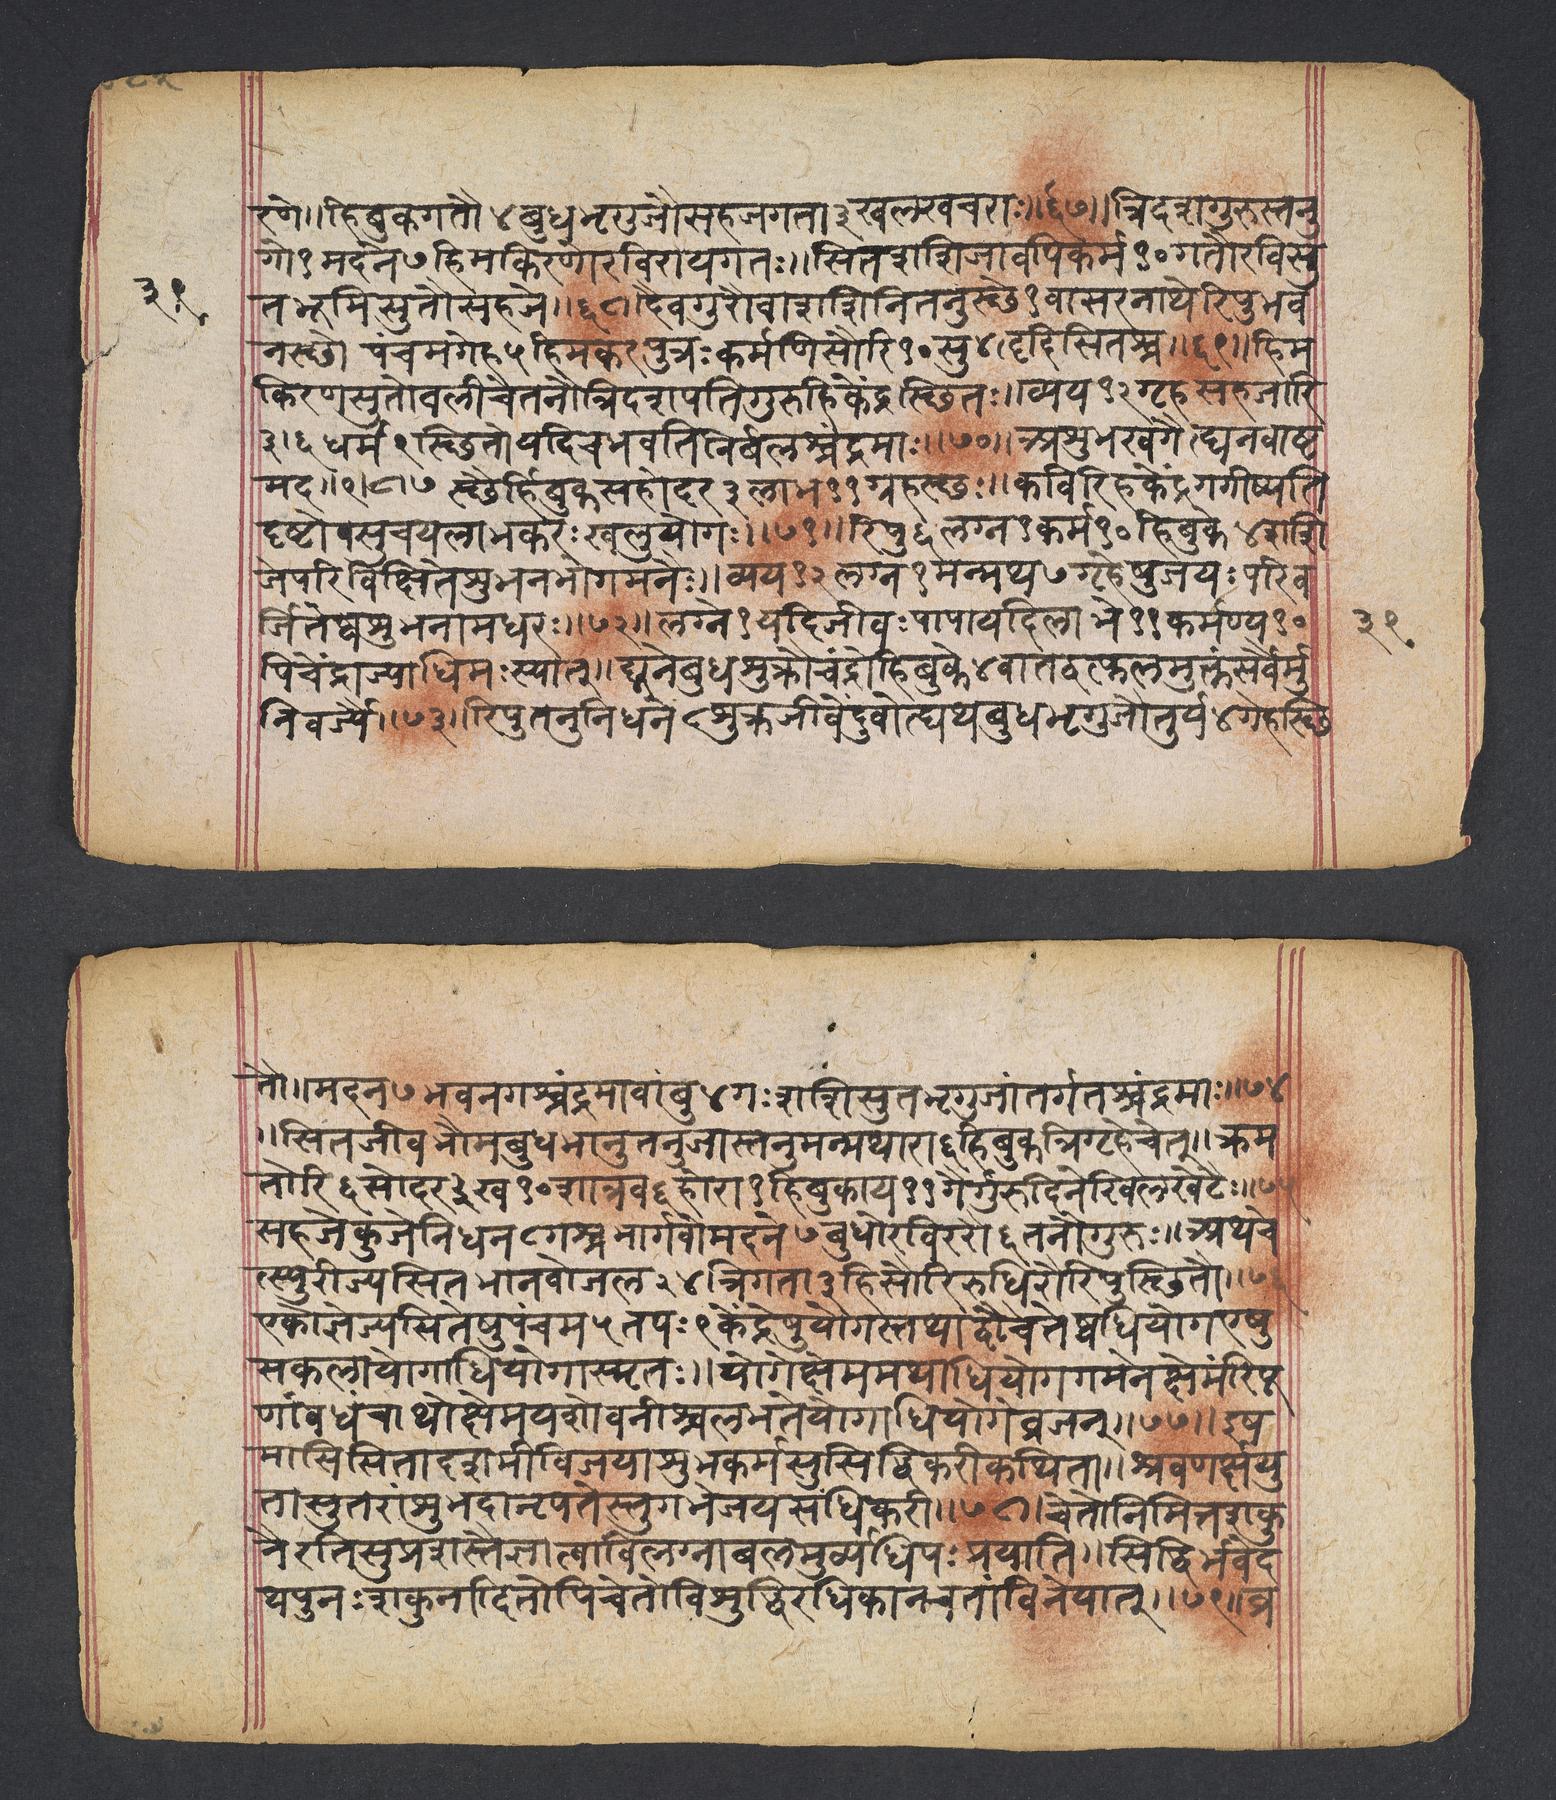 रणे॥हिबुकगतौ४बुधभृगुजौसहजगता३खलखचराः॥६७॥त्रिदशगुरुस्तनु
गो१मदने७हिमकिरणोरविरायगतः॥सितशशिजावपिकर्म१०गतौरविसु
३१
तभूमिसुतौसहजे॥६८॥देवगुरौवाशशिनितनुस्छे१वासरनाथेरिपुभव
नस्छे पंचमगेह५हिमकरपुत्रःकर्मणिसौरि१०सु४हृदिसितश्च॥६९॥हिम
किरणसुतोवलीचेतनौत्रिदशपतिगुरुर्हिकेंद्रस्छितः॥व्यय१२गृहसहजारि
३।६धर्म९स्छितोयदिचभवतिनिर्बलश्चंद्रमाः॥७०॥अशुभखगैत्द्यनवाष्ट
मद॥९।८।७ स्छैर्हिबुकसहोदर३लाभ११ग्रहस्छः॥कविरिहकेंद्रगगीष्पति
दृष्टोवसुचयलाभकरःखलुयोगः॥७१॥रिपु६लग्न१कर्म१०हिबुके४शशि
जेपरिविक्षितेशुभनभोगमनैः॥व्यय१२लग्न१मन्मथ७गृहेषुजयःपरिव
र्जितेष्वशुभनामधरः॥७२॥लग्ने१यदिजीवःपापायदिलाभे११कर्मण्य१०
३१
पिचेंद्राज्याधिमःस्यात्॥द्यूनेबुधशुक्रौचंद्रोहिबुके४वातद्वत्फलमुक्तंसर्वैर्मु
निवर्य्यैः॥७३॥रिपुतनुनिधने८शुक्रजीवेंदुवोत्द्यथबुधभृगुजौतुर्य४गेहस्छि
तौ॥मदन७भवनगश्चंद्रमावांबु४गःशशिसुतभृगुजांतर्गतश्चंद्रमाः॥७४
॥सितजीवभौमबुधभानुतनुजास्तनुमन्मथारा६हिबुकत्रिगृहेचेत्॥क्रम
तोरि६सोदर३ख१०शात्रव६होरा१हिबुकाय११गैर्गुरुदिनेरिवलखेटैः॥७५
सहजेकुजेनिधन८गेश्चभार्गवौमदने७बुधोरविररौ६तनौगुरुः॥अथचे
त्स्पुरीज्यसितभानवोजल२४त्रिगता३हिसौरिरुधिरौरिपुस्छितौ॥७६
एकोज्ञेज्यसितेषुपंचम५तपः९केंद्रेषुयोगस्तथाद्वौचेत्तेष्वधियोगएषु
सकलायोगाधियोगास्मृतः॥योगेक्षेममथाधियोगगमनेक्षेमंरिपू
णांवधंचाथोक्षेमयशोवनीश्चलभतेयोगाधियोगेव्रजन्॥७७॥इष
मासिसितादशमीविजयाशुभकर्मसुसिद्धिकरीकथिता॥श्रवणर्क्षयु
तासुतरांशुभदानृपतेस्तुगमेजयसंधिकरी॥७८॥चेतोनिमित्तशकु
नैरतिसुप्रशस्तैर्ज्ञात्वाविलग्नाबलमुर्व्यधिपःप्रयाति॥सिद्धिर्भवेद
थपुनःशकुनादितोपिचेतोविशुद्धिरधिकानचतांविनेयात्॥७९॥व्र